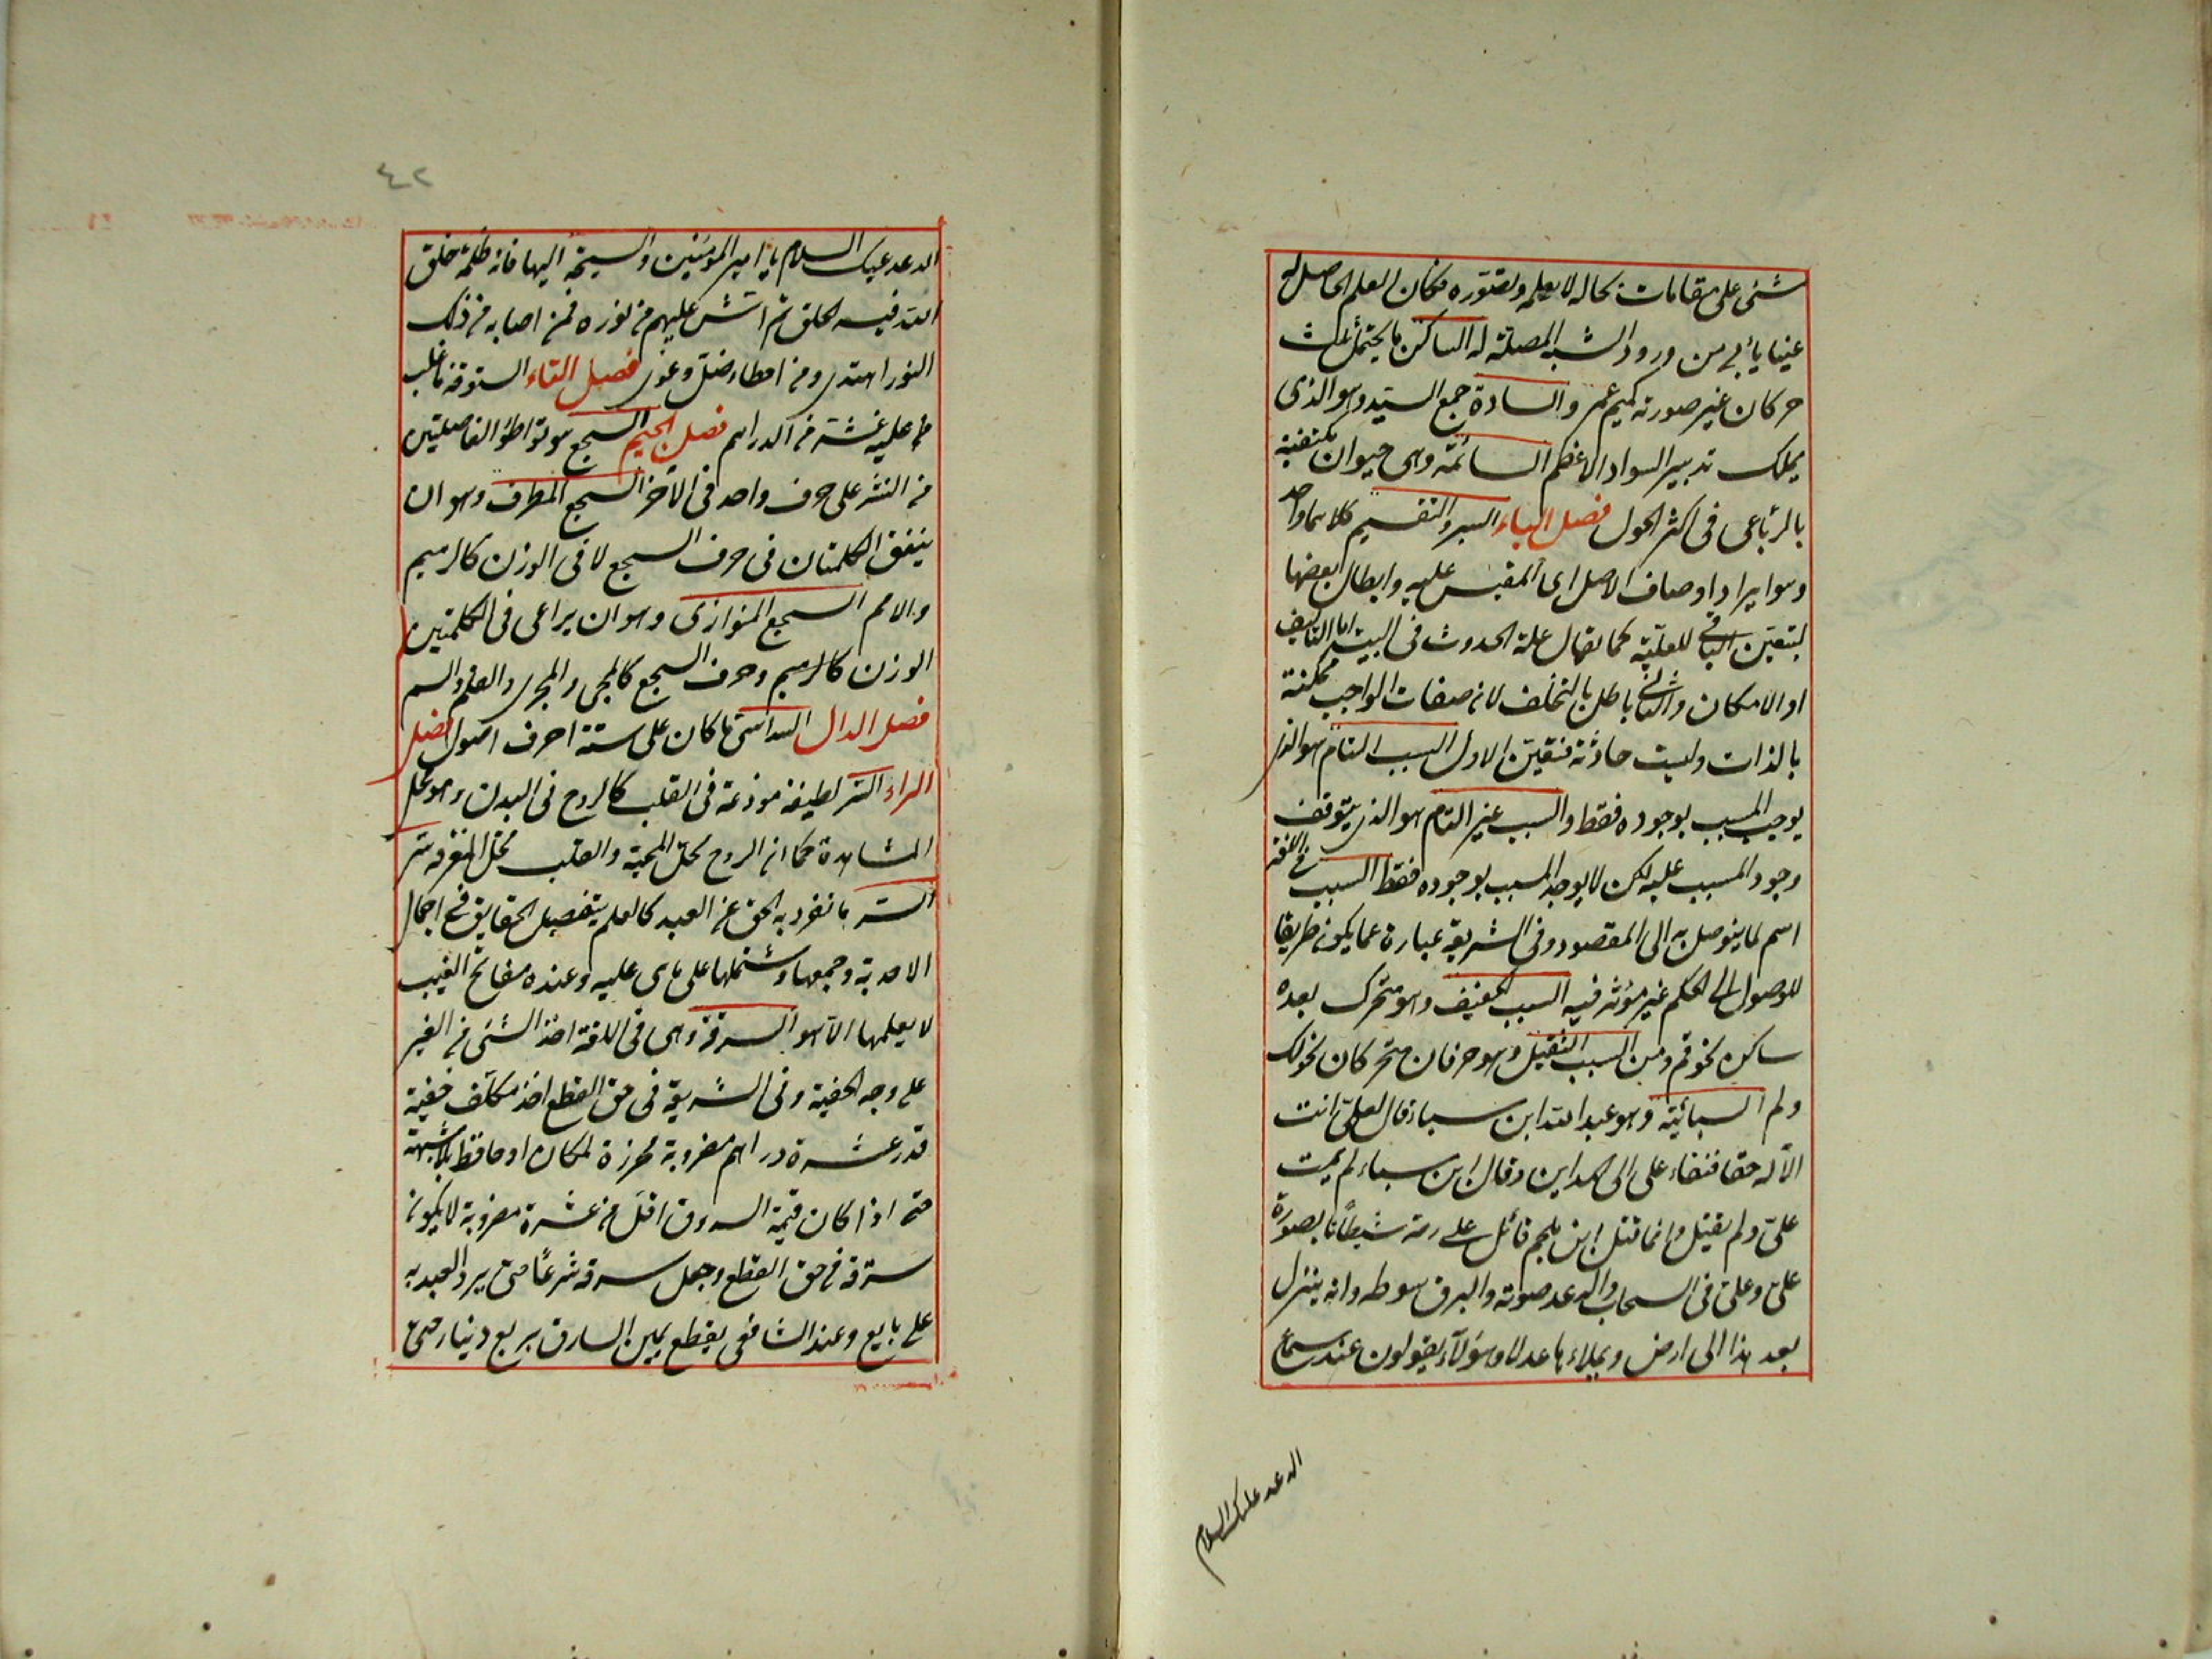 شئ على مقامات بحاله لا يعلمه ولا تصوره فكان العلم الحاصل له
عينيا يأبى من ورود الشبه المصلة له الساكن ما يحتمل ثلث
حركات غير صورته كميم عمر والسادة جمع السيد وهو الذى
يملك تدبير السواد الاعظم السائمة وهى حيوان مكتفية
بالرباعى فى اكثر الحول فصل الباء السبر والتقسيم كلاهما واحد
وهو ايراد اوصاف الاصل اى المقيس عليه وابطال بعضها
ليتعين الباقى للعلية كما يقال علة الحدوث فى البيت اما التأليف
او الامكان والثانى باطل بالتخلف لان صفات الواجب ممكنة
بالذات وليست حادثة فتعين الاول السبب التام هو الذى
يوجب المسبب بوجوده فقط والسبب غير التام هو الذى يتوقف
وجود المسبب عليه لكن لا يوجد المسبب بوجوده فقط السبب فى اللغة
اسم لما يتوصل به الى المقصود وفى الشريعة عبارة عما يكون طريقا
للوصول الى الحكم غير مؤثر فيه السبب الخفيف وهو متحرك بعده
ساكن نحو قم ومن السبب الثقيل وهو حرفان متحركان نحو لك
ولم السبائية وهو عبد الله ابن سبا قال لعلى انت
الآله حقا فنفاء على الى المداين وقال ابن سباء لم يمت
على ولم يقتل وانما قتل ابن ملجم قاتل على رمة شيطانا بصورة
على وعلى فى السحاب والرعد صوته والبرق سوطه وانه ينزل
بعد هذا الى ارض ويملاءها عدلا وهؤلآء يقولون عند سماع
الرعد عليك السلام
٤٢
الرعد عليك السلام يا امير المؤمنين والسبخة اليها فانه ظلمة خلق
الله فيه الخلق ثم رش عليهم من نوره فمن اصابه من ذلك
النور اهتدى ومن اخطاء ضل وغوى فصل التاء الستوقة ما غلب
عليه غشه من الدراهم فصل الجيم السجع هو تواطؤ الفاصلتين
من النثر على حرف واحد فى الآخر السجع المطرف وهو ان
يتفق الكلمتان فى حرف السجع لا فى الوزن كالرميم
والامم السجع المتوازى وهو ان يراعى فى الكلمتين
الوزن كالرميم وحرف السجع كالمجى والمجرى والقلم والسم
فصل الدال السداسى ما كان على ستة احرف اصول فصل
الراء السر لطيفة مودعة فى القلب كالروح فى البدن وهو محل
المشاهدة كما ان الروح محل المحبة والقلب محل المعرفة سر
السر ما تفرد به الحق عن العبد كالعلم بتفصيل الحقايق فى اجمال
الاحدية وجمعها وشتملها على ما هى عليه وعنده مفاتح الغيب
لا يعلمها الا هو السرقة وهى فى اللغة اخذ الشئ من الغير
على وجه الخفية وفى الشريعة فى حق القطع اخذ مكلف خفية
قدر عشرة دراهم مضروبة محرزة لمكان او حافظ بلا شبهة
حتى اذا كان قيمة المسروق اقل من عشرة مضروبة لا يكون
سرقة فى حق القطع وجعل سرقة شرعا حتى يرد العبد به
على بايع وعند الشافعى يقطع يمين السارق بربع دينار حتى